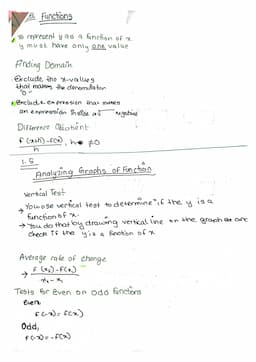 Functions
to represent y as a function of x
y must have only one value
Finding Domain
· Exclude the x-values
that makes the denominator
"0"
· Exclude expression that makes
an expression inside a √ negative
Difference Quotient
f(x+h)-f(x) / h, h ≠ 0
1.5
Analyzing Graphs of Function
Vertical Test
→ You use vertical test to determine if the y is a
function of x.
→ You do that by drawing vertical line on the graph
check if the y is a function of x
Average rate of change
→ f(x₂)-f(x₁) / x₂-x₁
Tests for Even or Odd functions
Even
f(-x) = f(x)
Odd,
f(-x) = -f(x)